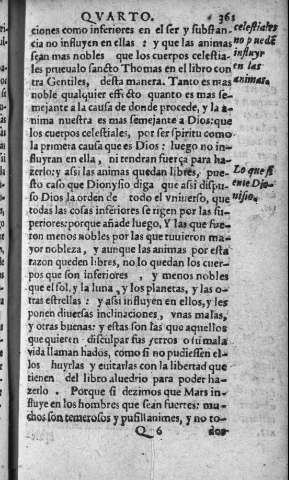 QVARTO. 361
ciones como inferiores en el ser y substan-
cia no influyen en ellas : y que las animas
sean mas nobles que los cuerpos celestia-
les prueualo sancto Thomas en el libro con
tra Gentiles, desta manera. Tanto es mas
noble qualquier effecto quanto es mas se-
mejante a la causa de donde procede, y la a-
nima nuestra es mas semejante a Dios: que
los cuerpos celestiales, por ser spiritu como
la primera causa que es Dios: luego no in-
fluyran en ella, ni tendran fuerça para ha-
zerlo: y assi las animas quedan libres, pue-
sto caso que Dionysio diga que assi dispu-
so Dios la orden de todo el vniuerso, que
todas las cosas inferiores se rigen por las su-
periores: porque añade luego, Y las que fue-
ron menos nobles por las que tuuieron ma-
yor nobleza, y aunque las animas por esta
razon queden libres, no lo quedan los cuer-
pos que son inferiores, y menos nobles
que el sol, y la luna, y los planetas, y las o-
tras estrellas : y assi influyen en ellos, y les
ponen diuersas inclinaciones, vnas malas,
y otras buenas: y estas son las que aquellos
que quieren disculpar sus yerros o su mala
vida llaman hados, como si no pudiessen el-
los huyrlas y euitarlas con la libertad que
tienen del libro aluedrio para poder ha-
zerlo. Porque si dezimos que Mars in-
fluye en los hombres que sean fuertes: mu-
chos son temerosos y pusillanimes, y no to-
Q 6 dos
celestiales
no puedẽ
influyr
en las
animas.
Lo que si
ente Dio-
nisio.